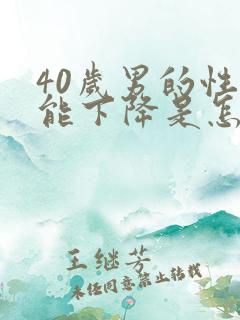 40岁男的性
能下降是怎
王继芳
未经同意禁止转载